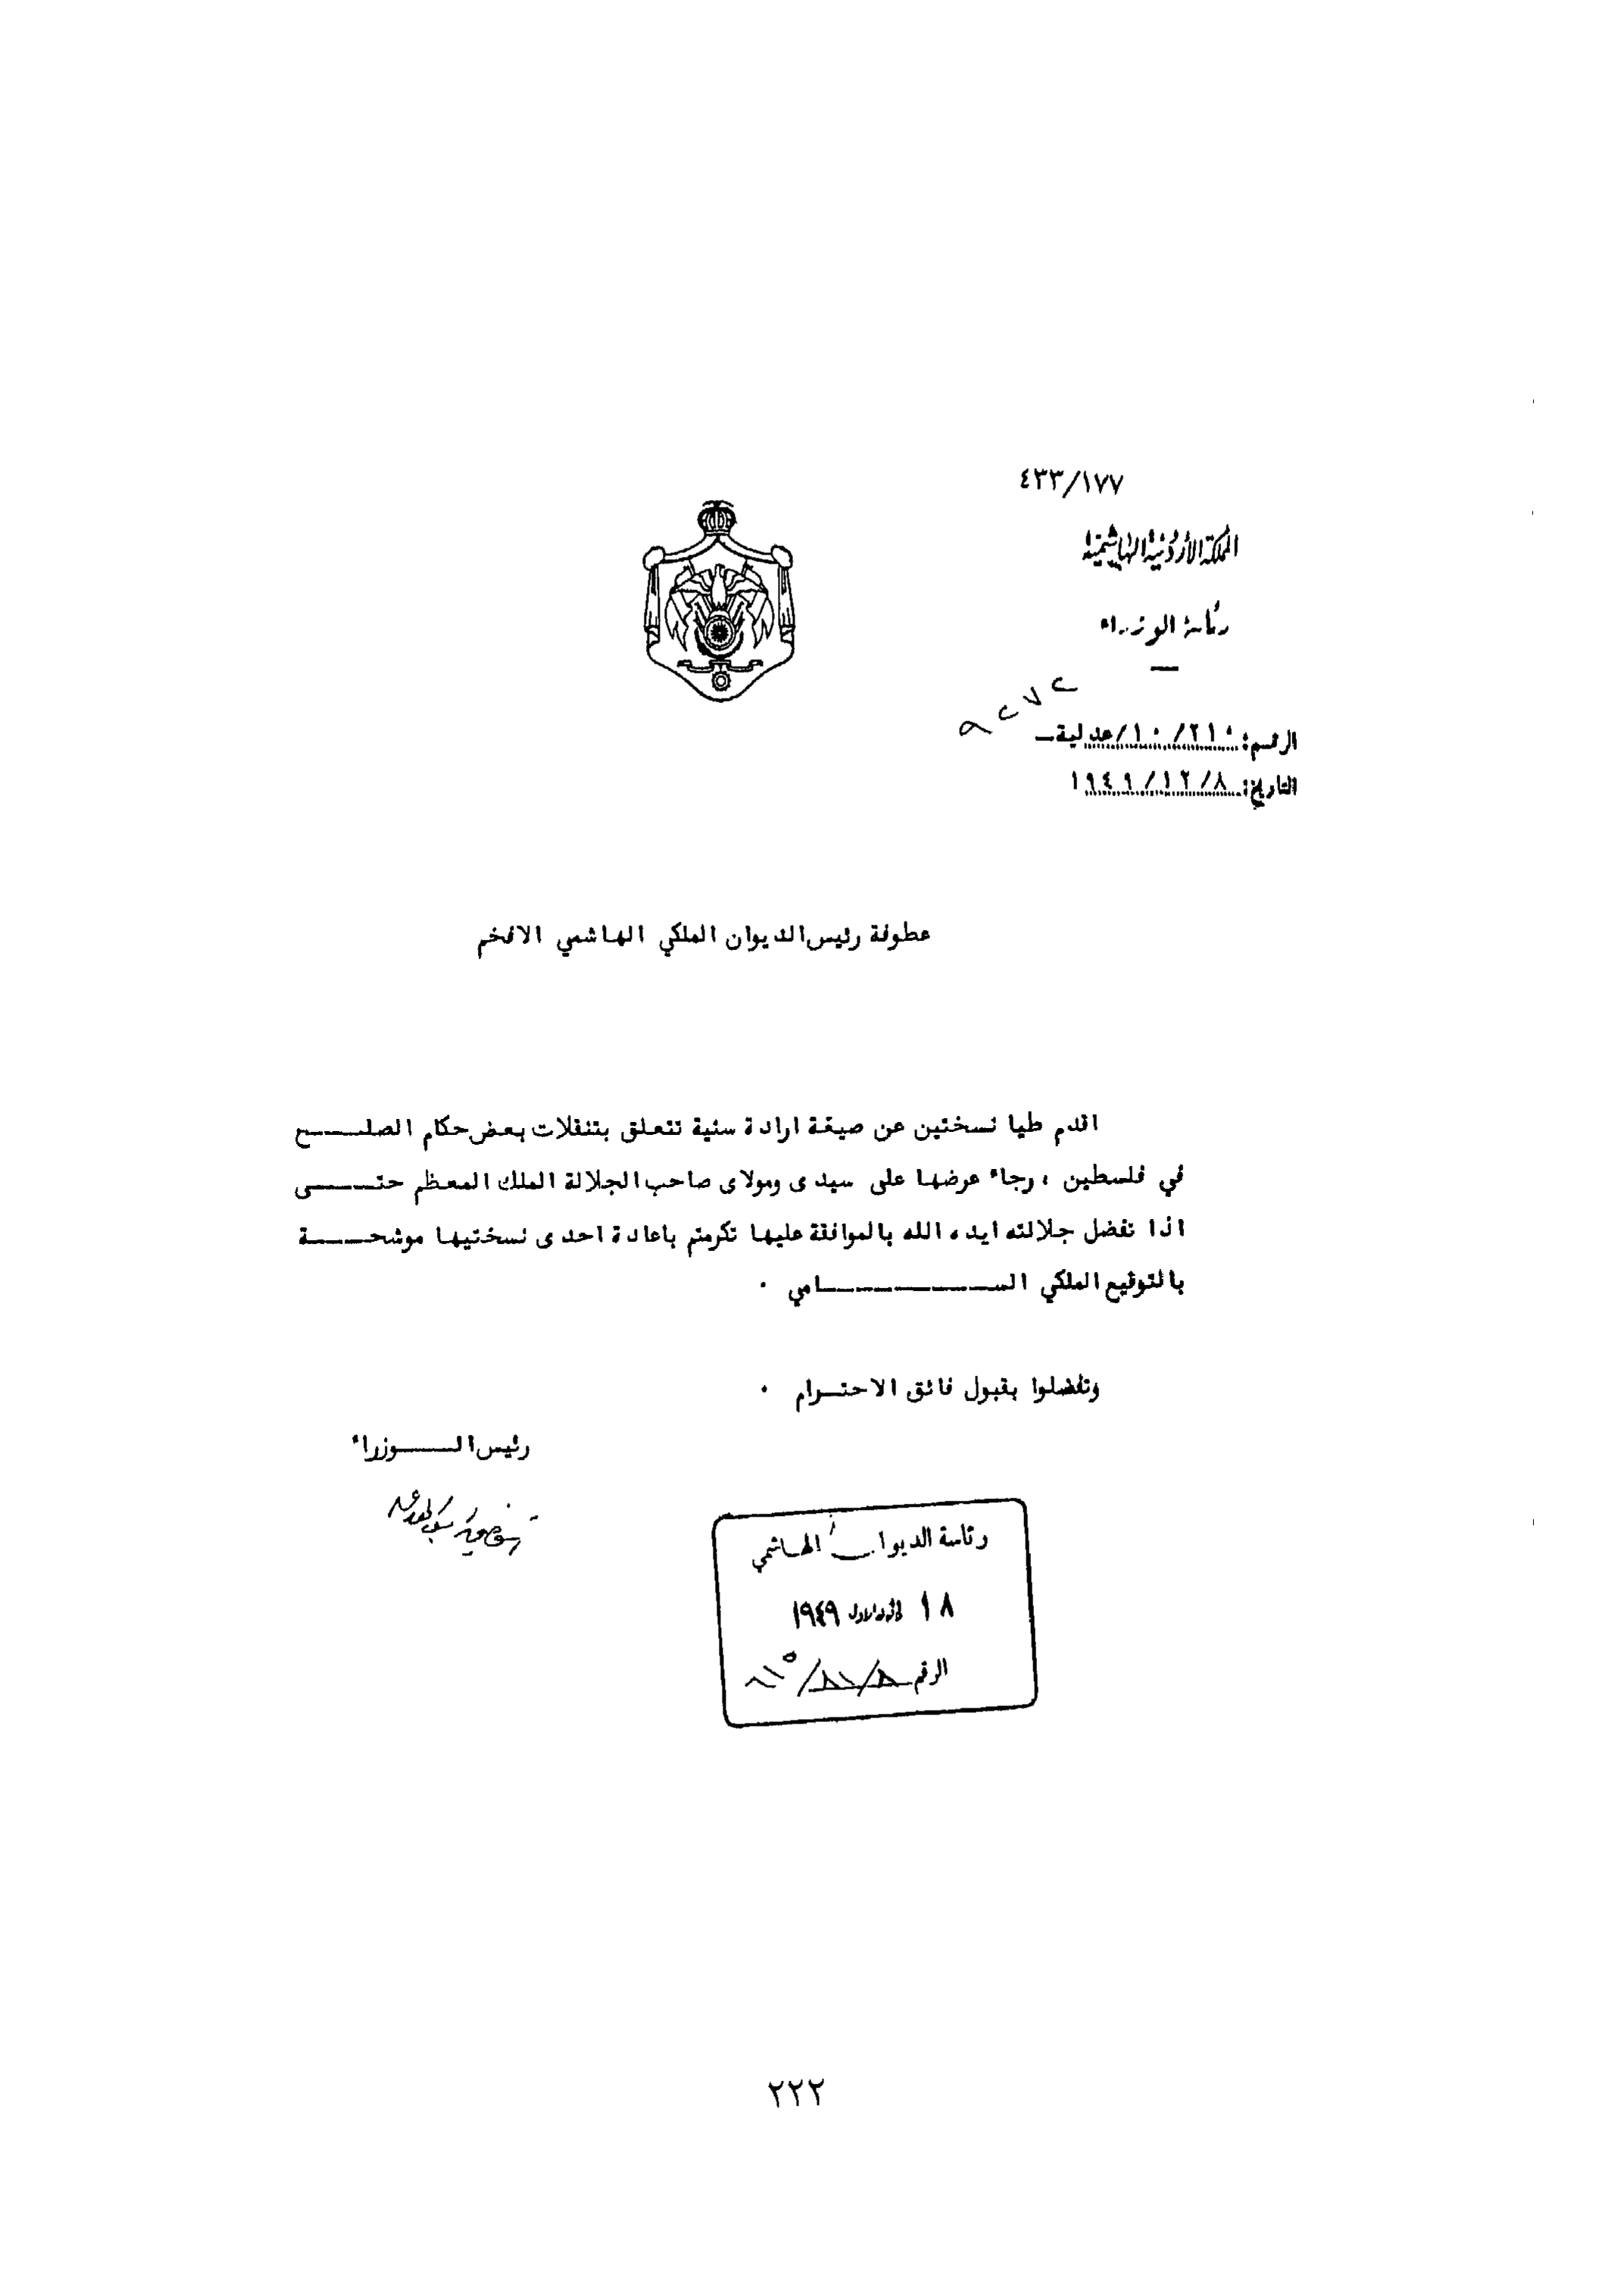 ٤٣٣/١٧٧
المملكة الأردنية الهاشمية
رئاسة الوزراء
الرقم: ٢١٠/١٠/عدلية
التاريخ: ١٩٤٩/١٢/٨
عطوفة رئيس الديوان الملكي الهاشمي الافخم
اقدم طيا نسختين عن صيغة ارادة سنية تتعلق بتنقلات بعض حكام الصلـــح
في فلسطين ، رجاء عرضها على سيدى ومولاى صاحب الجلالة الملك المعظم حتــــى
اذا تفضل جلالته ايده الله بالموافقة عليها تكرمتم باعادة احدى نسختيها موشحــــة
بالتوقيع الملكي الســـــــــــامي ٠
وتفضلوا بقبول فائق الاحتـرام ٠
رئيس الـــــوزراء
رئاسة الديوان الهاشمي
١٨ كانون الاول ١٩٤٩
الرقم
٢٢٢